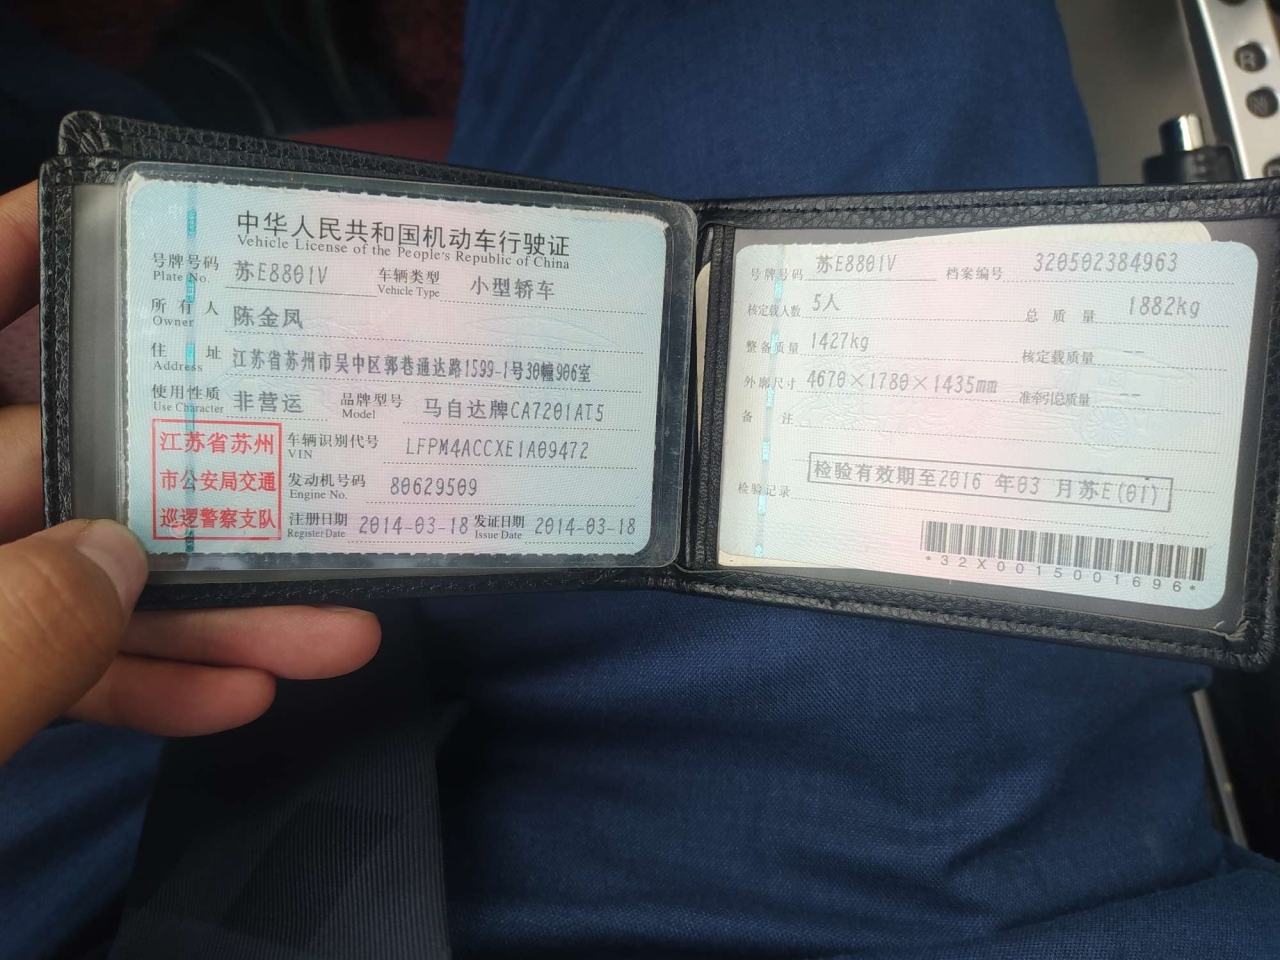 中华人民共和国机动车行驶证
Vehicle License of the People's Republic of China
号牌号码 苏E8801V 车辆类型 小型轿车
Plate No. Vehicle Type
所有人 陈金凤
Owner
住址 江苏省苏州市吴中区郭巷通达路1599-1号30幢906室
Address
使用性质 非营运 品牌型号 马自达牌CA7201AT5
Use Character Model
江苏省苏州
市公安局交通
巡逻警察支队
车辆识别代号 LFPM4ACCXE1A09472
VIN
发动机号码 80629509
Engine No.
注册日期 2014-03-18 发证日期 2014-03-18
Register Date Issue Date
号牌号码 苏E8801V 档案编号 320502384963
核定载人数 5人 总质量 1882kg
整备质量 1427kg 核定载质量 --
外廓尺寸 4670×1780×1435mm 准牵引总质量 --
备注
检验记录 检验有效期至2016年03月苏E(01)
*32X0015001696*
R
N